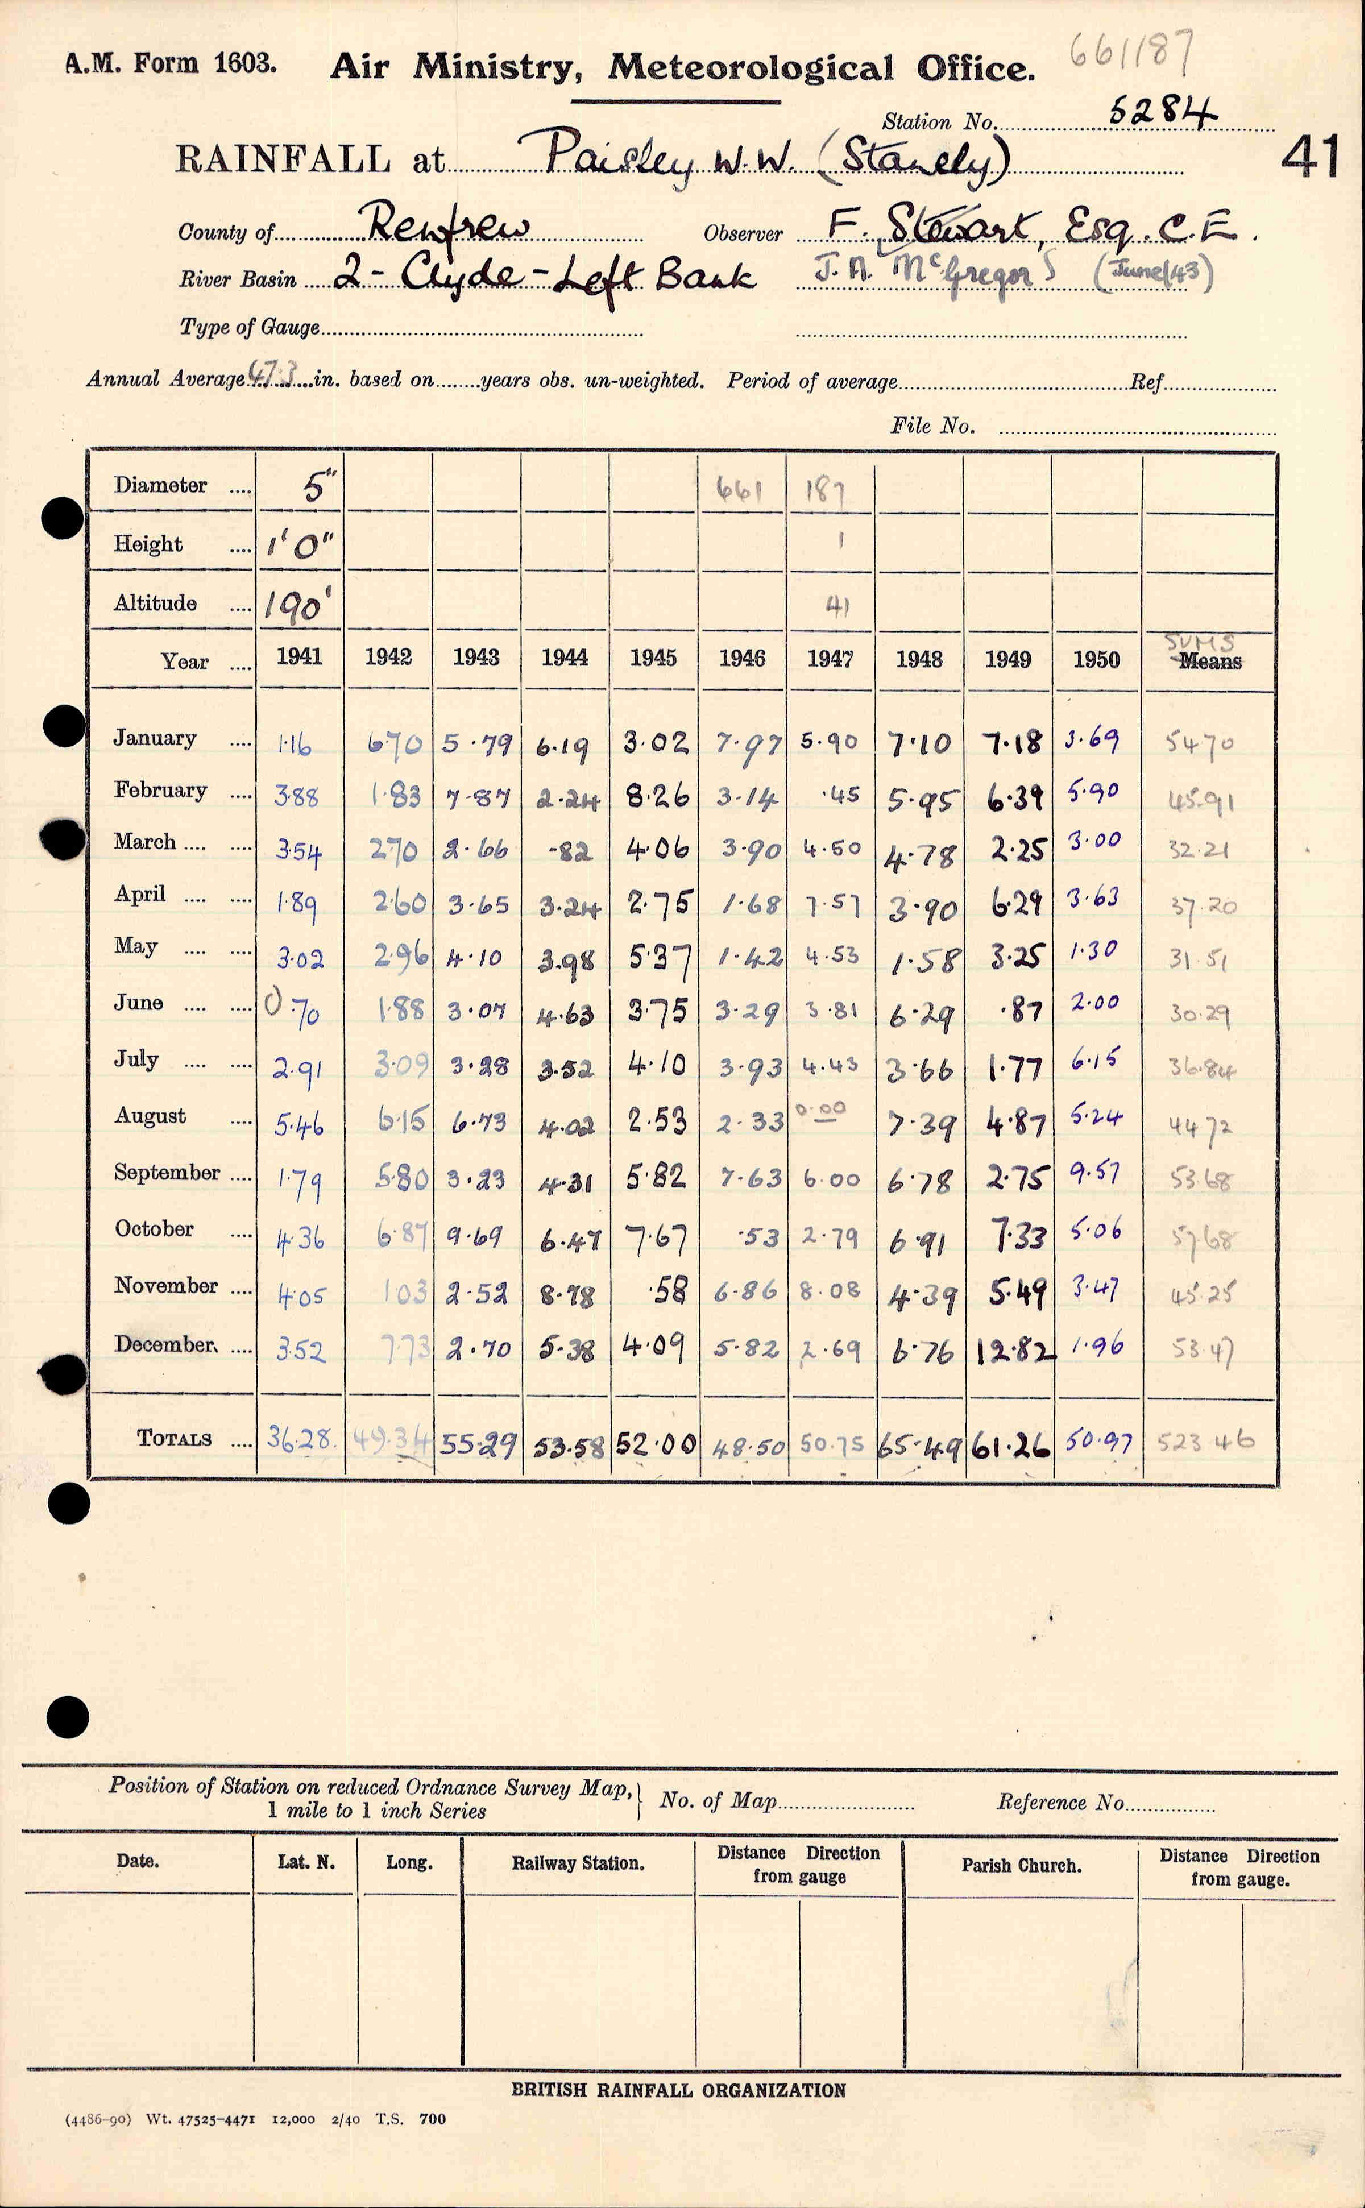 A.M. Form 1603. Air Ministry, Meteorological Office. 661187
Station No. 5284
RAINFALL at Paisley W.W. (Stanely) 41
County of Renfrew Observer F. Stewart, Esq. C.E.
River Basin 2 - Clyde - Left Bank J. A. McGregor (June/43)
Type of Gauge
Annual Average 47.3 in. based on years obs. un-weighted. Period of average Ref.
File No.
Diameter 5" 661 187
Height 1'0" 1
Altitude 190' 41
SUMS
Year 1941 1942 1943 1944 1945 1946 1947 1948 1949 1950 Means
January 1.16 6.70 5.79 6.19 3.02 7.97 5.90 7.10 7.18 3.69 54.70
February 3.88 1.83 7.87 2.24 8.26 3.14 .45 5.95 6.39 5.90 45.91
March 3.54 2.70 2.66 .82 4.06 3.90 4.50 4.78 2.25 3.00 32.21
April 1.89 2.60 3.65 3.24 2.75 1.68 7.57 3.90 6.29 3.63 37.20
May 3.02 2.96 4.10 3.98 5.37 1.42 4.53 1.58 3.25 1.30 31.51
June 0.70 1.88 3.07 4.63 3.75 3.29 3.81 6.29 .87 2.00 30.29
July 2.91 3.09 3.28 3.52 4.10 3.93 4.43 3.66 1.77 6.15 36.84
August 5.46 6.15 6.73 4.02 2.53 2.33 0.00 7.39 4.87 5.24 44.72
September 1.79 5.80 3.23 4.31 5.82 7.63 6.00 6.78 2.75 9.57 53.68
October 4.36 6.87 9.69 6.47 7.67 .53 2.79 6.91 7.33 5.06 57.68
November 4.05 1.03 2.52 8.78 .58 6.86 8.08 4.39 5.49 3.47 45.25
December. 3.52 7.73 2.70 5.38 4.09 5.82 2.69 6.76 12.82 1.96 53.47
TOTALS 36.28 49.34 55.29 53.58 52.00 48.50 50.75 65.49 61.26 50.97 523.46
Position of Station on reduced Ordnance Survey Map, 1 mile to 1 inch Series } No. of Map Reference No.
Date. Lat. N. Long. Railway Station. Distance Direction from gauge Parish Church. Distance Direction from gauge.
BRITISH RAINFALL ORGANIZATION
(4486-90) Wt. 47525-4471 12,000 2/40 T.S. 700